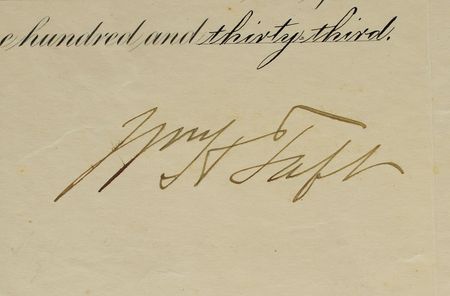 e hundred and thirty-third.
Wm H Taft